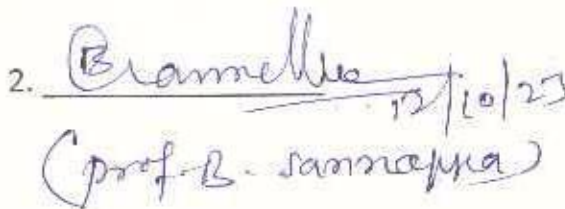 2.
12/10/23
(prof. B. Sannappa)